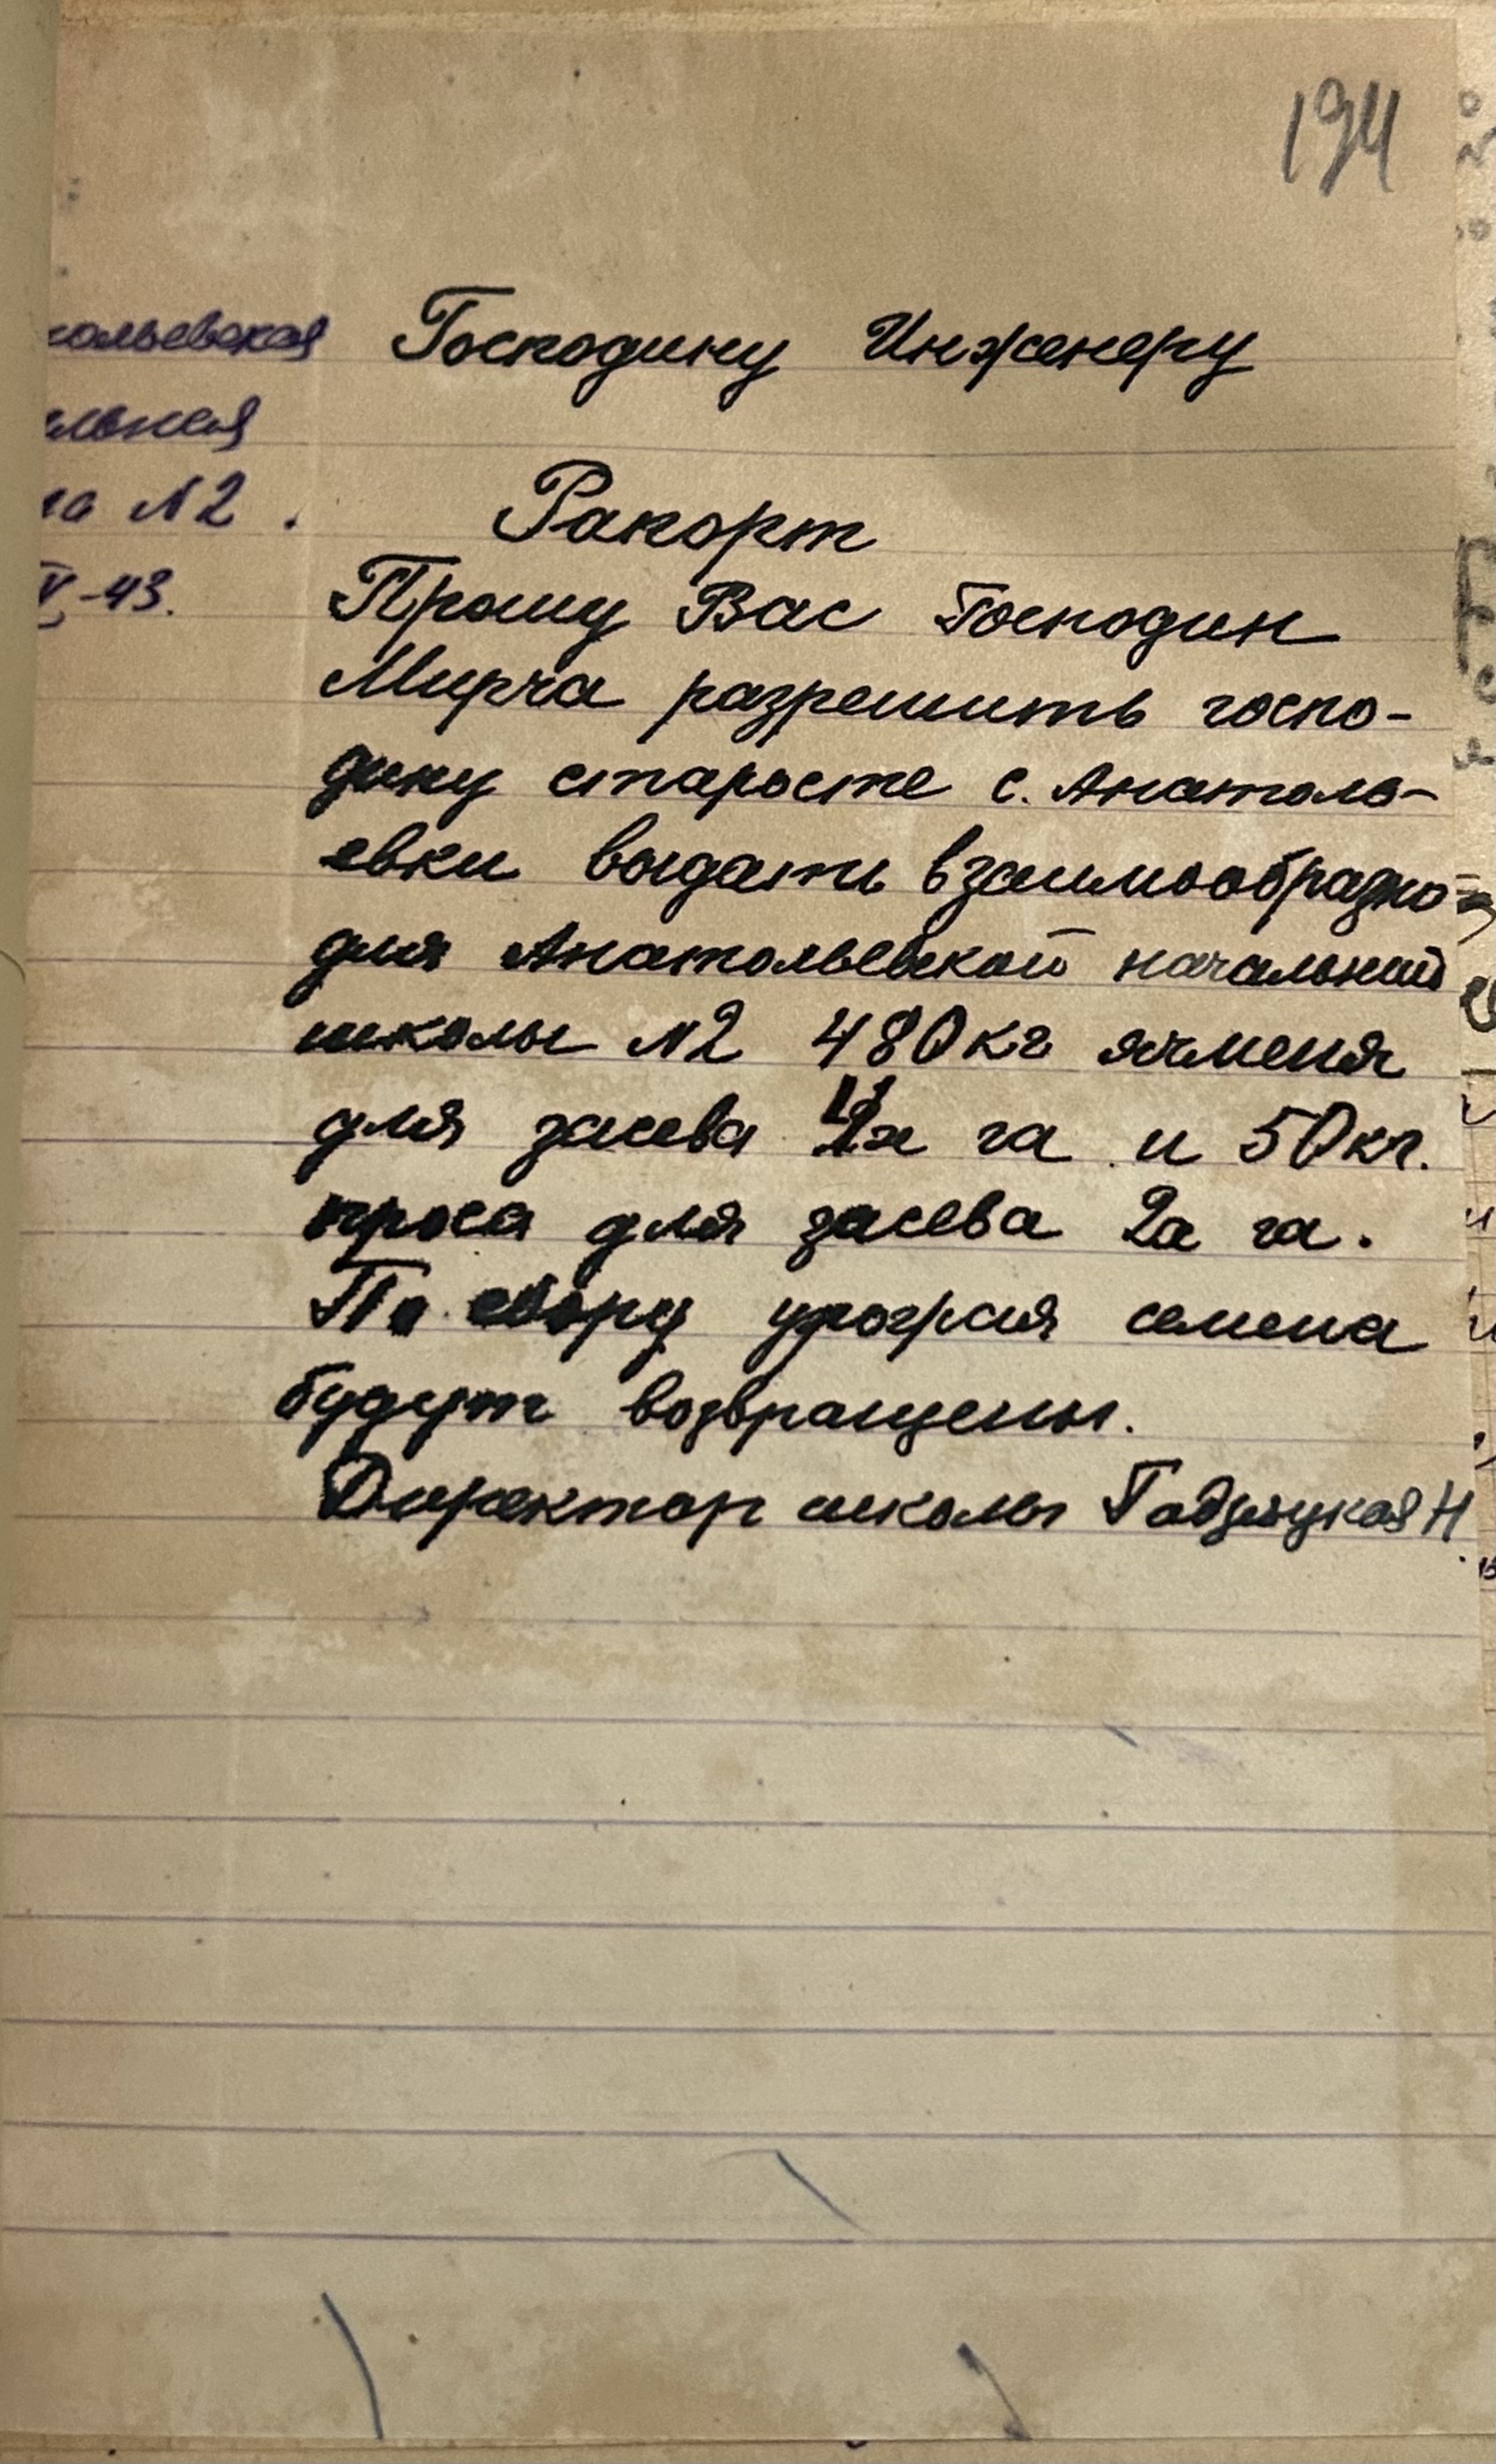 194
кольевская Господину Инженеру
льная
ла N2.
Рапорт
V-43. Прошу Вас Господин
Мирча разрешить госпо-
дину старосте с. Анатоль-
евки выдать взаимообразно
для Анатольевской начальной
школы N2 480 кг ячменя
для засева га и 50 кг.
проса для засева 2х га.
По сбору урожая семена
будут возвращены.
Директор школы Гадзяцкая Н.